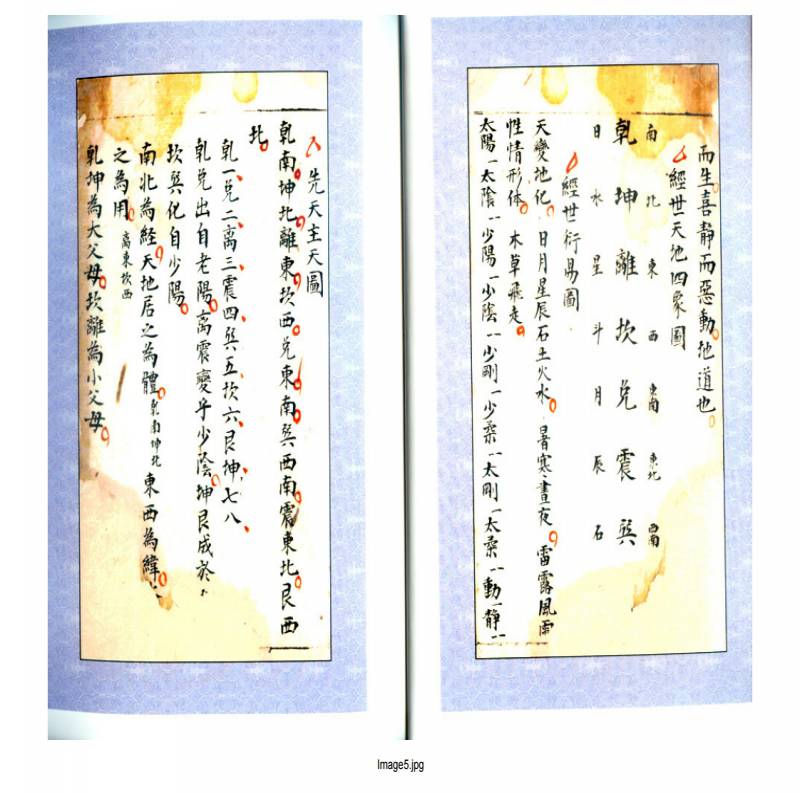 而生喜靜而惡動地道也
經世天地四象圖
南 北 東 西 東南 東北 西南
乾 坤 離 坎 兌 震 巽
日 水 星 斗 月 辰 石
經世衍易圖
天變地化 日月星辰石土火水 暑寒晝夜 雷露風雨
性情形体 木草飛走
太陽一太陰一少陽一少陰一少剛一少柔一太剛一太柔一動一靜一
先天主天圖
乾南坤北離東坎西兌東南巽西南震東北艮西
北
乾一兌二离三震四巽五坎六艮坤七八
乾兌出自老陽离震變乎少陰坤艮成於
坎巽化自少陽
南北為経天地居之為體乾南坤北東西為緯
之為用离東坎西
乾坤為大父母坎離為小父母
Image5.jpg